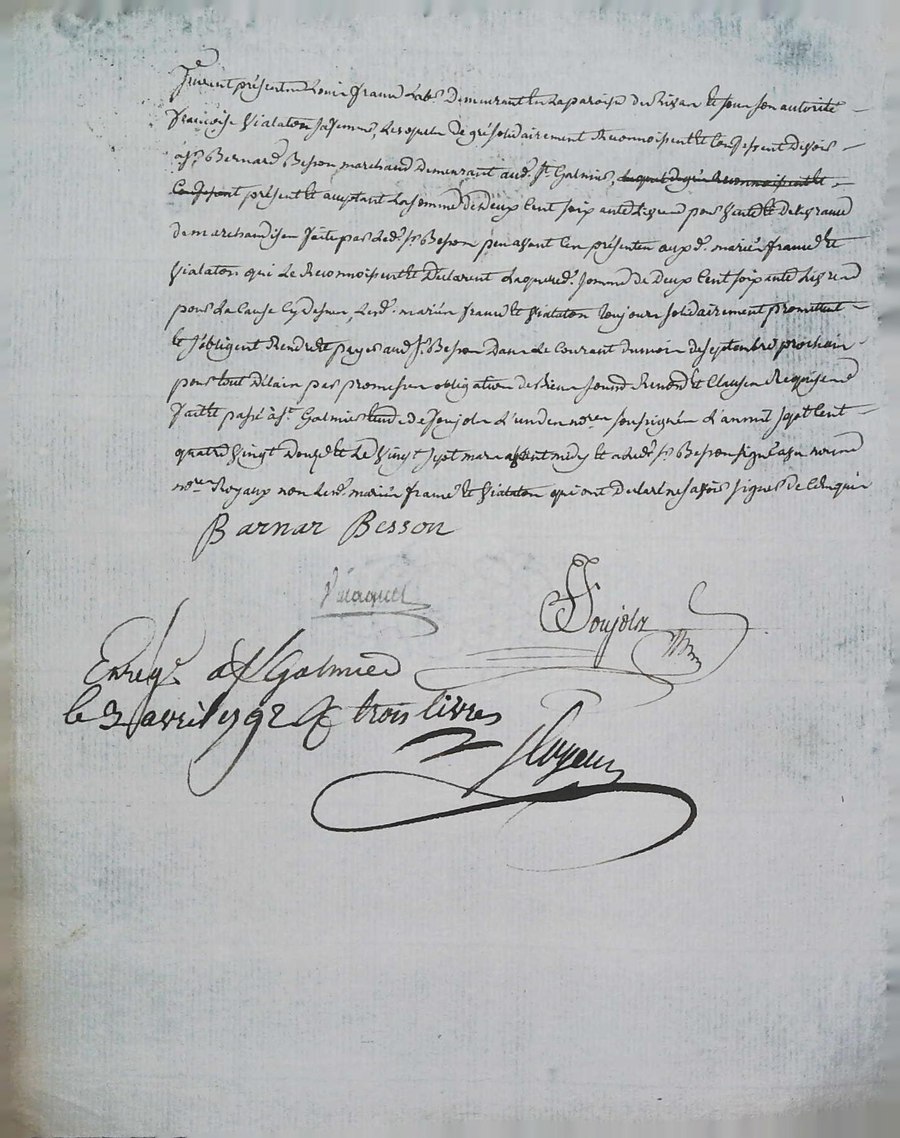 furent présents Louis franc demeurant en la paroisse de et sous son autorité
françoise Vialaton sa femme, lesquels de gré solidairement Reconnoissent et Confessent devoir
à sr. Bernard Besson marchand demeurant aud. st Galmier, lesquels de gré Reconnoissent et
Confessent présent et acceptant la somme de deux cent soixante livres pour vente et délivrance
de marchandises faite par led. sr Besson peu avant ces présentes auxd. mariés franc et
Vialaton qui le Reconnoissent et Déclarent laquelle d. somme de Deux Cent soixante livres
pour la cause cy dessus, lesd. mariés franc et Vialaton toujours solidairement promettent
et s'obligent Rendre et payer aud. sr. Besson Dans le Courant du mois de septembre prochain
pour tout délais par promesses obligation de Biens soumis. Renond. et Clauses Requises
faitte passé à st. Galmier de soujols l'un des nores soussignés l'an mil sept cent
quatre Vingt Douze et le Vingt sept mars avant midy et a led. sr Besson signé avec nous
nores. Royaux non lesd. mariés franc et Vialaton qui ont déclaré ne savoir signer de ce enquis
Barnar Besson
Soujols
Enregé. à st Galmier
le 3 avril 1792 R trois livres